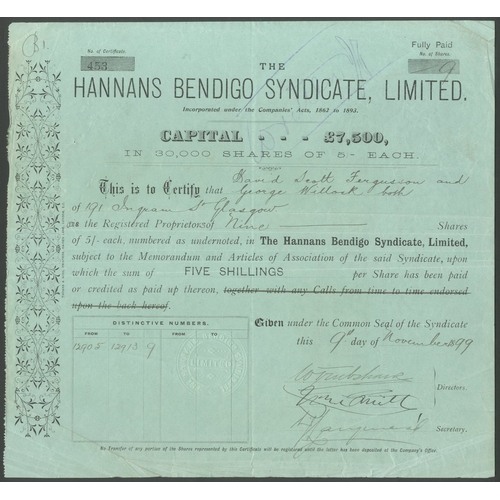 No. of Certificate.
453
Fully Paid
No. of Shares.
9
THE
HANNANS BENDIGO SYNDICATE, LIMITED.
Incorporated under the Companies' Acts, 1862 to 1893.
CAPITAL - - - £7,500,
IN 30,000 SHARES OF 5/- EACH.
This is to Certify that David Scott Fergusson and
George Willock both
of 191 Ingram St Glasgow
the Registered Proprietors of Nine Shares
of 5/- each, numbered as undernoted, in The Hannans Bendigo Syndicate, Limited,
subject to the Memorandum and Articles of Association of the said Syndicate, upon
which the sum of FIVE SHILLINGS per Share has been paid
or credited as paid up thereon, together with any Calls from time to time endorsed
upon the back hereof.
DISTINCTIVE NUMBERS.
FROM TO FROM TO
12905 12913 9
Given under the Common Seal of the Syndicate
this 9th day of November 1899
Directors.
Secretary.
No Transfer of any portion of the Shares represented by this Certificate will be registered until the latter has been deposited at the Company's Office.